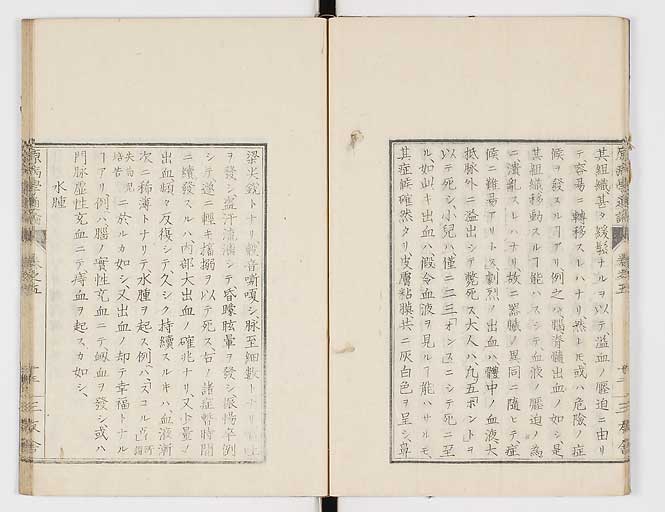 其組織甚タ緩鬆ナルヲ以テ、溢血ノ壓迫ニ由リ
テ容易ニ轉移スレハナリ、然トモ、或ハ危險ノ症
候ヲ發スルヿアリ、例之ハ、腦、脊髓出血ノ如シ、是
其組織移動スルヿ能ハスシテ血液ノ壓迫ノ為
ニ潰亂スレハナリ、故ニ器臟ノ異同ニ隨ヒテ症
候ニ難易アリトス、劇烈ノ出血ハ體中ノ血液大
抵脉外ニ溢出シテ斃死ス、大人ハ九五「ポント」ヲ
以テ死シ、小兒ハ僅ニ二三「オンス」ニシテ死ニ至
ル、如斯キ出血ハ假令血液ヲ見ルヿ能ハサルモ、
其症候確然タリ、皮膚粘膜共ニ灰白色ヲ呈シ、鼻
原病學通論
卷之五
三友舍
梁尖銳トナリ、聲音嘶嗄シ、脉至細數トナリ
ヲ發シ、盜汗流漓シテ昏矇眩暈ヲ發シ、漸揚卒倒
シテ遂ニ輕キ搐搦ヲ以テ死ス、右ノ諸症暫時間
ニ續發スルハ内部大出血ノ確兆ナリ、又少量ノ
出血頻々反復シテ、久シク持續スルキハ、血液漸
次ニ稀薄トナリテ水腫ヲ起ス、例ハ「スコルボ
ニ於ルカ如シ、又出血ノ却テ幸福トナル
ヿアリ、例ハ腦ノ實性充血ニテ衂血ヲ發シ、或ハ
門脉虛性充血ニテ痔血ヲ起スカ如シ、
水腫
原病學通論
卷之五
三友舍